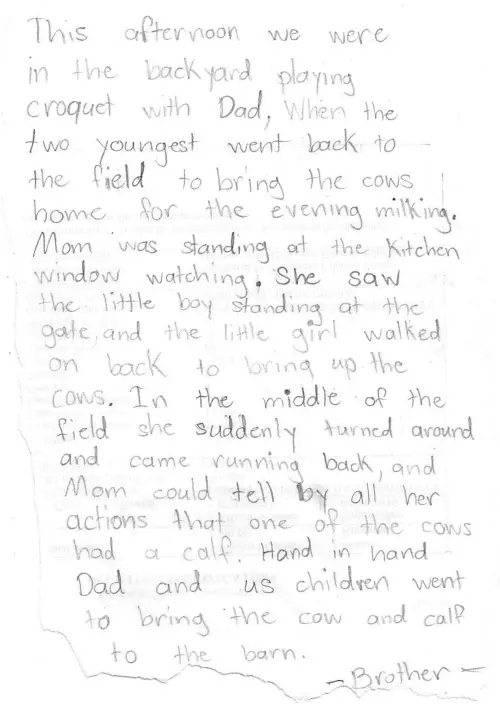 This afternoon we were
in the backyard playing
croquet with Dad, When the
two youngest went back to
the field to bring the cows
home for the evening milking.
Mom was standing at the Kitchen
window watching. She saw
the little boy standing at the
gate, and the little girl walked
on back to bring up the
cows. In the middle of the
field she suddenly turned around
and came running back, and
Mom could tell by all her
actions that one of the cows
had a calf. Hand in hand
Dad and us children went
to bring the cow and calf
to the barn.
- Brother -